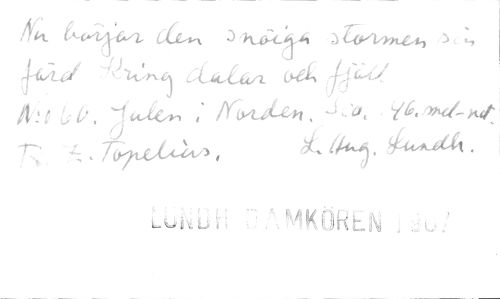 Nu börjar den snöiga stormen sin
färd kring dalar och fjäll
No 160. Julen i Norden. Sid. 46. mel-not.
T. Z. Topelius. L. Aug. Lundh.
LUNDH DAMKÖREN 1907